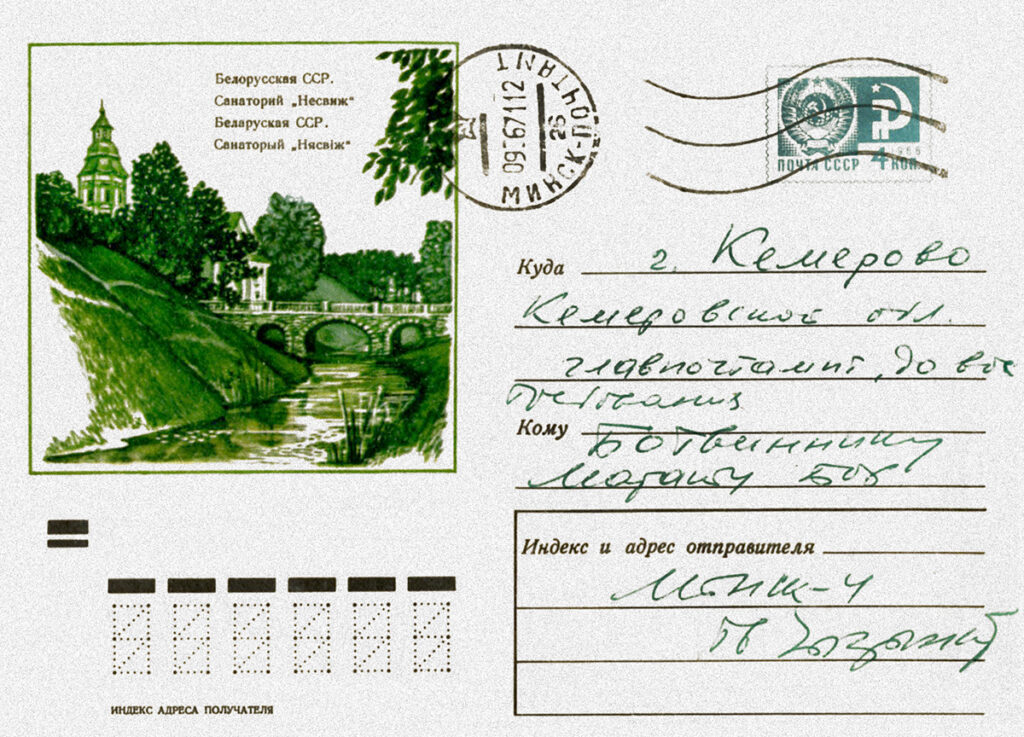 Белорусская ССР.
Санаторий „Несвиж"
Беларуская ССР.
Санаторый „Нясвіж"
МИНСК-ПОЧТАМТ
26
ПОЧТА СССР 4 КОП.
1966
Куда г. Кемерово
Кемеровской обл.
главпочтамт, до вос
требования
Кому Ботвиннику
Индекс и адрес отправителя
Минск-4
ИНДЕКС АДРЕСА ПОЛУЧАТЕЛЯ